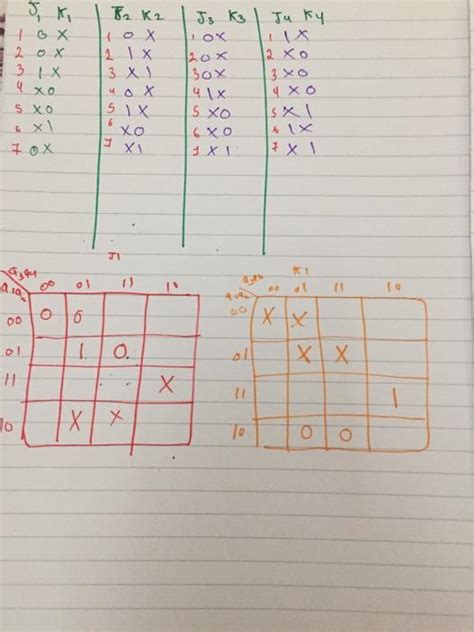 J1 K1 J2 K2 J3 K3 J4 K4
1 0 X 1 0 X 1 0X 1 1X
2 0 X 2 1 X 2 0X 2 X0
3 1 X 3 X 1 3 0X 3 X0
4 X0 4 0 X 4 1X 4 X0
5 X0 5 1X 5 X0 5 X1
6 X1 6 X0 6 X0 6 1X
7 0X 7 X1 7 X1 7 X 1
J1 K1
00 01 11 10 00 01 11 10
00 0 0 00 X X
01 1 0 01 X X
11 X 11 1
10 X X 10 0 0